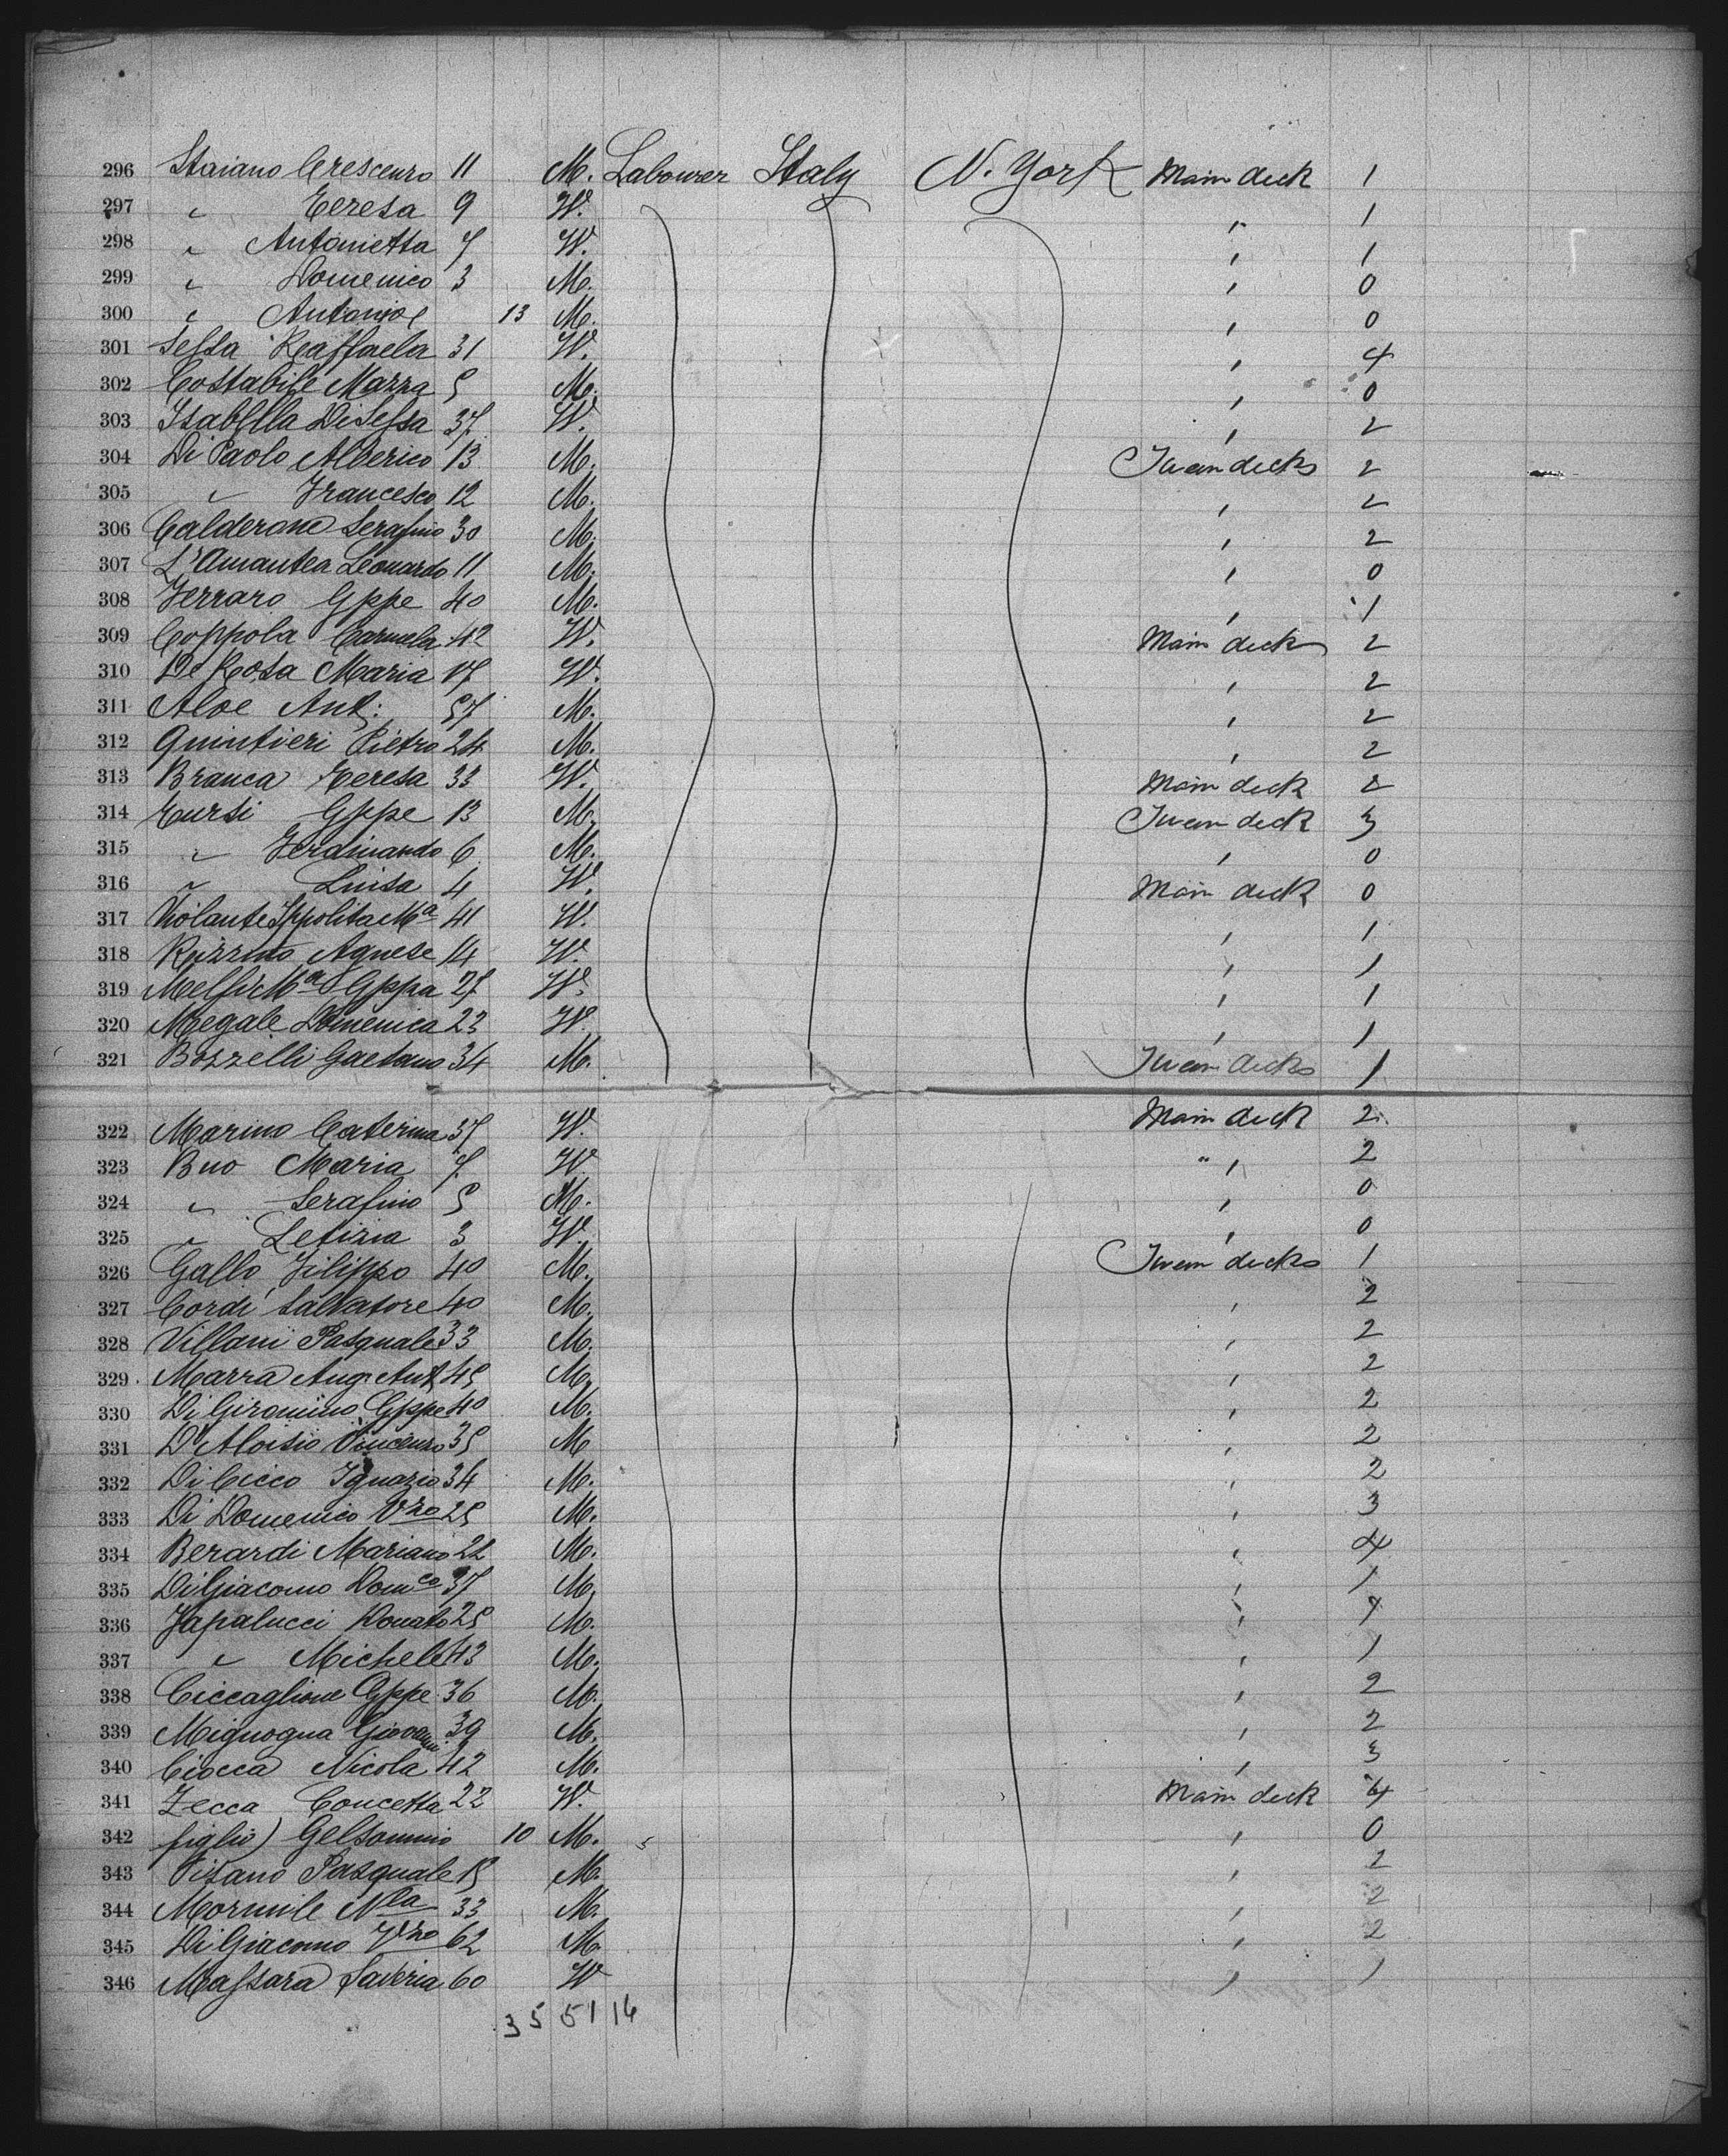 296 Staiano Crescenzo 11 M. Labourer Italy N. York Main deck 1
297 " Teresa 9 W. " 1
298 " Antonietta 7 W. " 1
299 " Domenico 3 M. " 0
300 " Antonio 13 M. " 0
301 Sessa Raffaela 31 W. " 4
302 Costabile Mazza 5 M. " 0
303 Isabella Di Sessa 37 W. " 2
304 Di Paolo Alberico 13 M. Tween decks 2
305 " Francesco 12 M. " 2
306 Calderone Serafino 30 M. " 2
307 L'Amantea Leonardo 11 M. " 0
308 Ferraro Gppe 40 M. " 1
309 Coppola Carmela 42 W. Main deck 2
310 De Rosa Maria 17 W. " 2
311 Aloe Ant: 57 M. " 2
312 Quintieri Pietro 24 M. " 2
313 Branca Teresa 33 W. Main deck 2
314 Tursi Gppe 13 M. Tween deck 3
315 " Ferdinando 6 M. " 0
316 " Luisa 4 W. Main deck 0
317 Violante Ippolita Ma 41 W. " 1
318 Rizzuto Agnese 14 W. " 1
319 Melfi Ma Gppa 27 W. " 1
320 Megale Domenica 23 W. " 1
321 Bozzelli Gaetano 34 M. Tween decks 1
322 Marino Caterina 37 W. Main deck 2
323 Buo Maria 7 W. " 2
324 " Serafino 5 M. " 0
325 " Letizia 3 W. " 0
326 Gallo Filippo 40 M. Tween decks 1
327 Cordi Salvatore 40 M. " 2
328 Villani Pasquale 33 M. " 2
329 Marra Aug. Ant 45 M. " 2
330 Di Giromino Gppe 40 M. " 2
331 D'Aloisio Vincenzo 35 M " 2
332 Di Cicco Ignazio 34 M. " 2
333 Di Domenico Vzo 25 M. " 3
334 Berardi Mariano 22 M. " 4
335 Di Giacomo Domco 37 M. " 1
336 Japalucci Donato 25 M. "
337 " Michele 43 M. " 1
338 Ciccaglione Gppe 36 M. " 2
339 Mignogna Giovanni 39 M. " 2
340 Ciocca Nicola 42 M. " 3
341 Zecca Concetta 22 W. Main deck 4
342 figlio) Gelsomino 10 M. " 0
343 Pisano Pasquale 15 M. " 2
344 Mormile Nla 33 M. " 2
345 Di Giacomo Vzo 62 M. " 2
346 Massara Saveria 60 W " 1
35 51 16